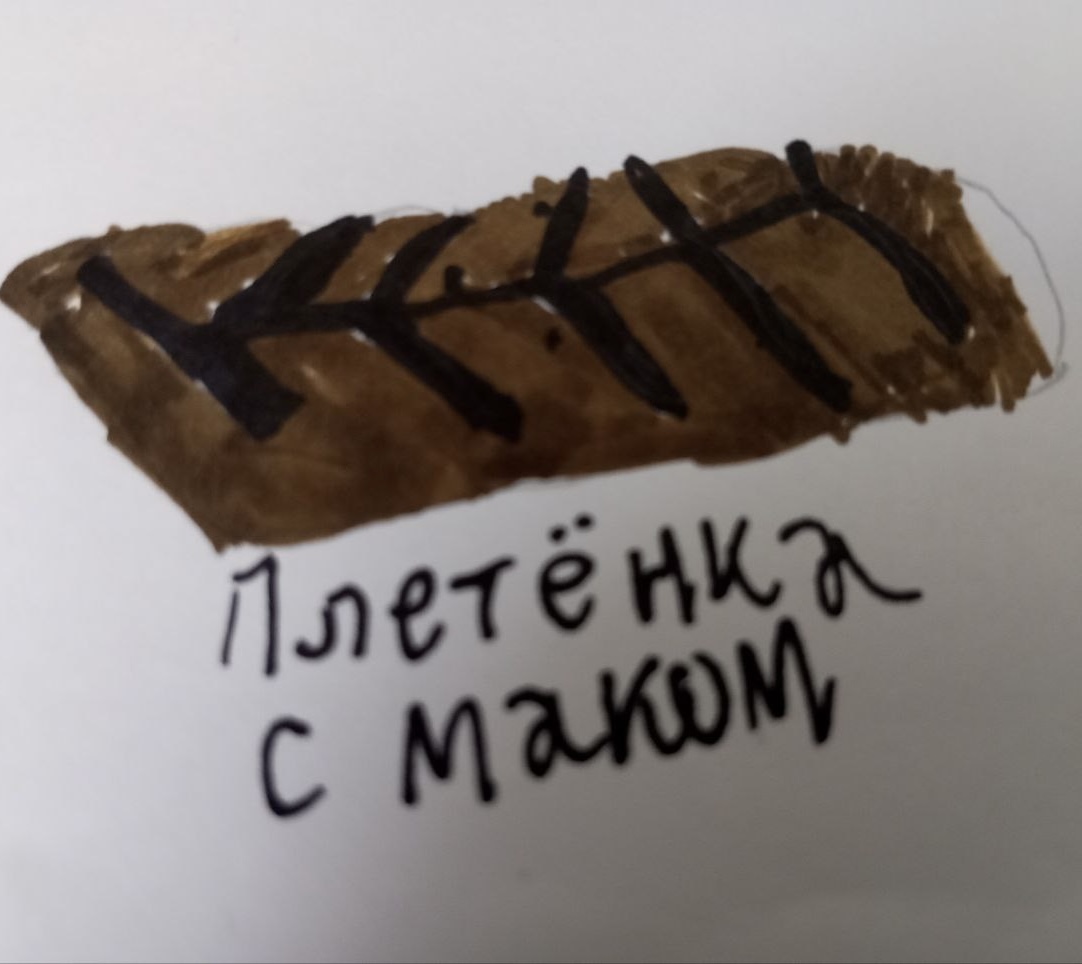 Плетёнка
с маком